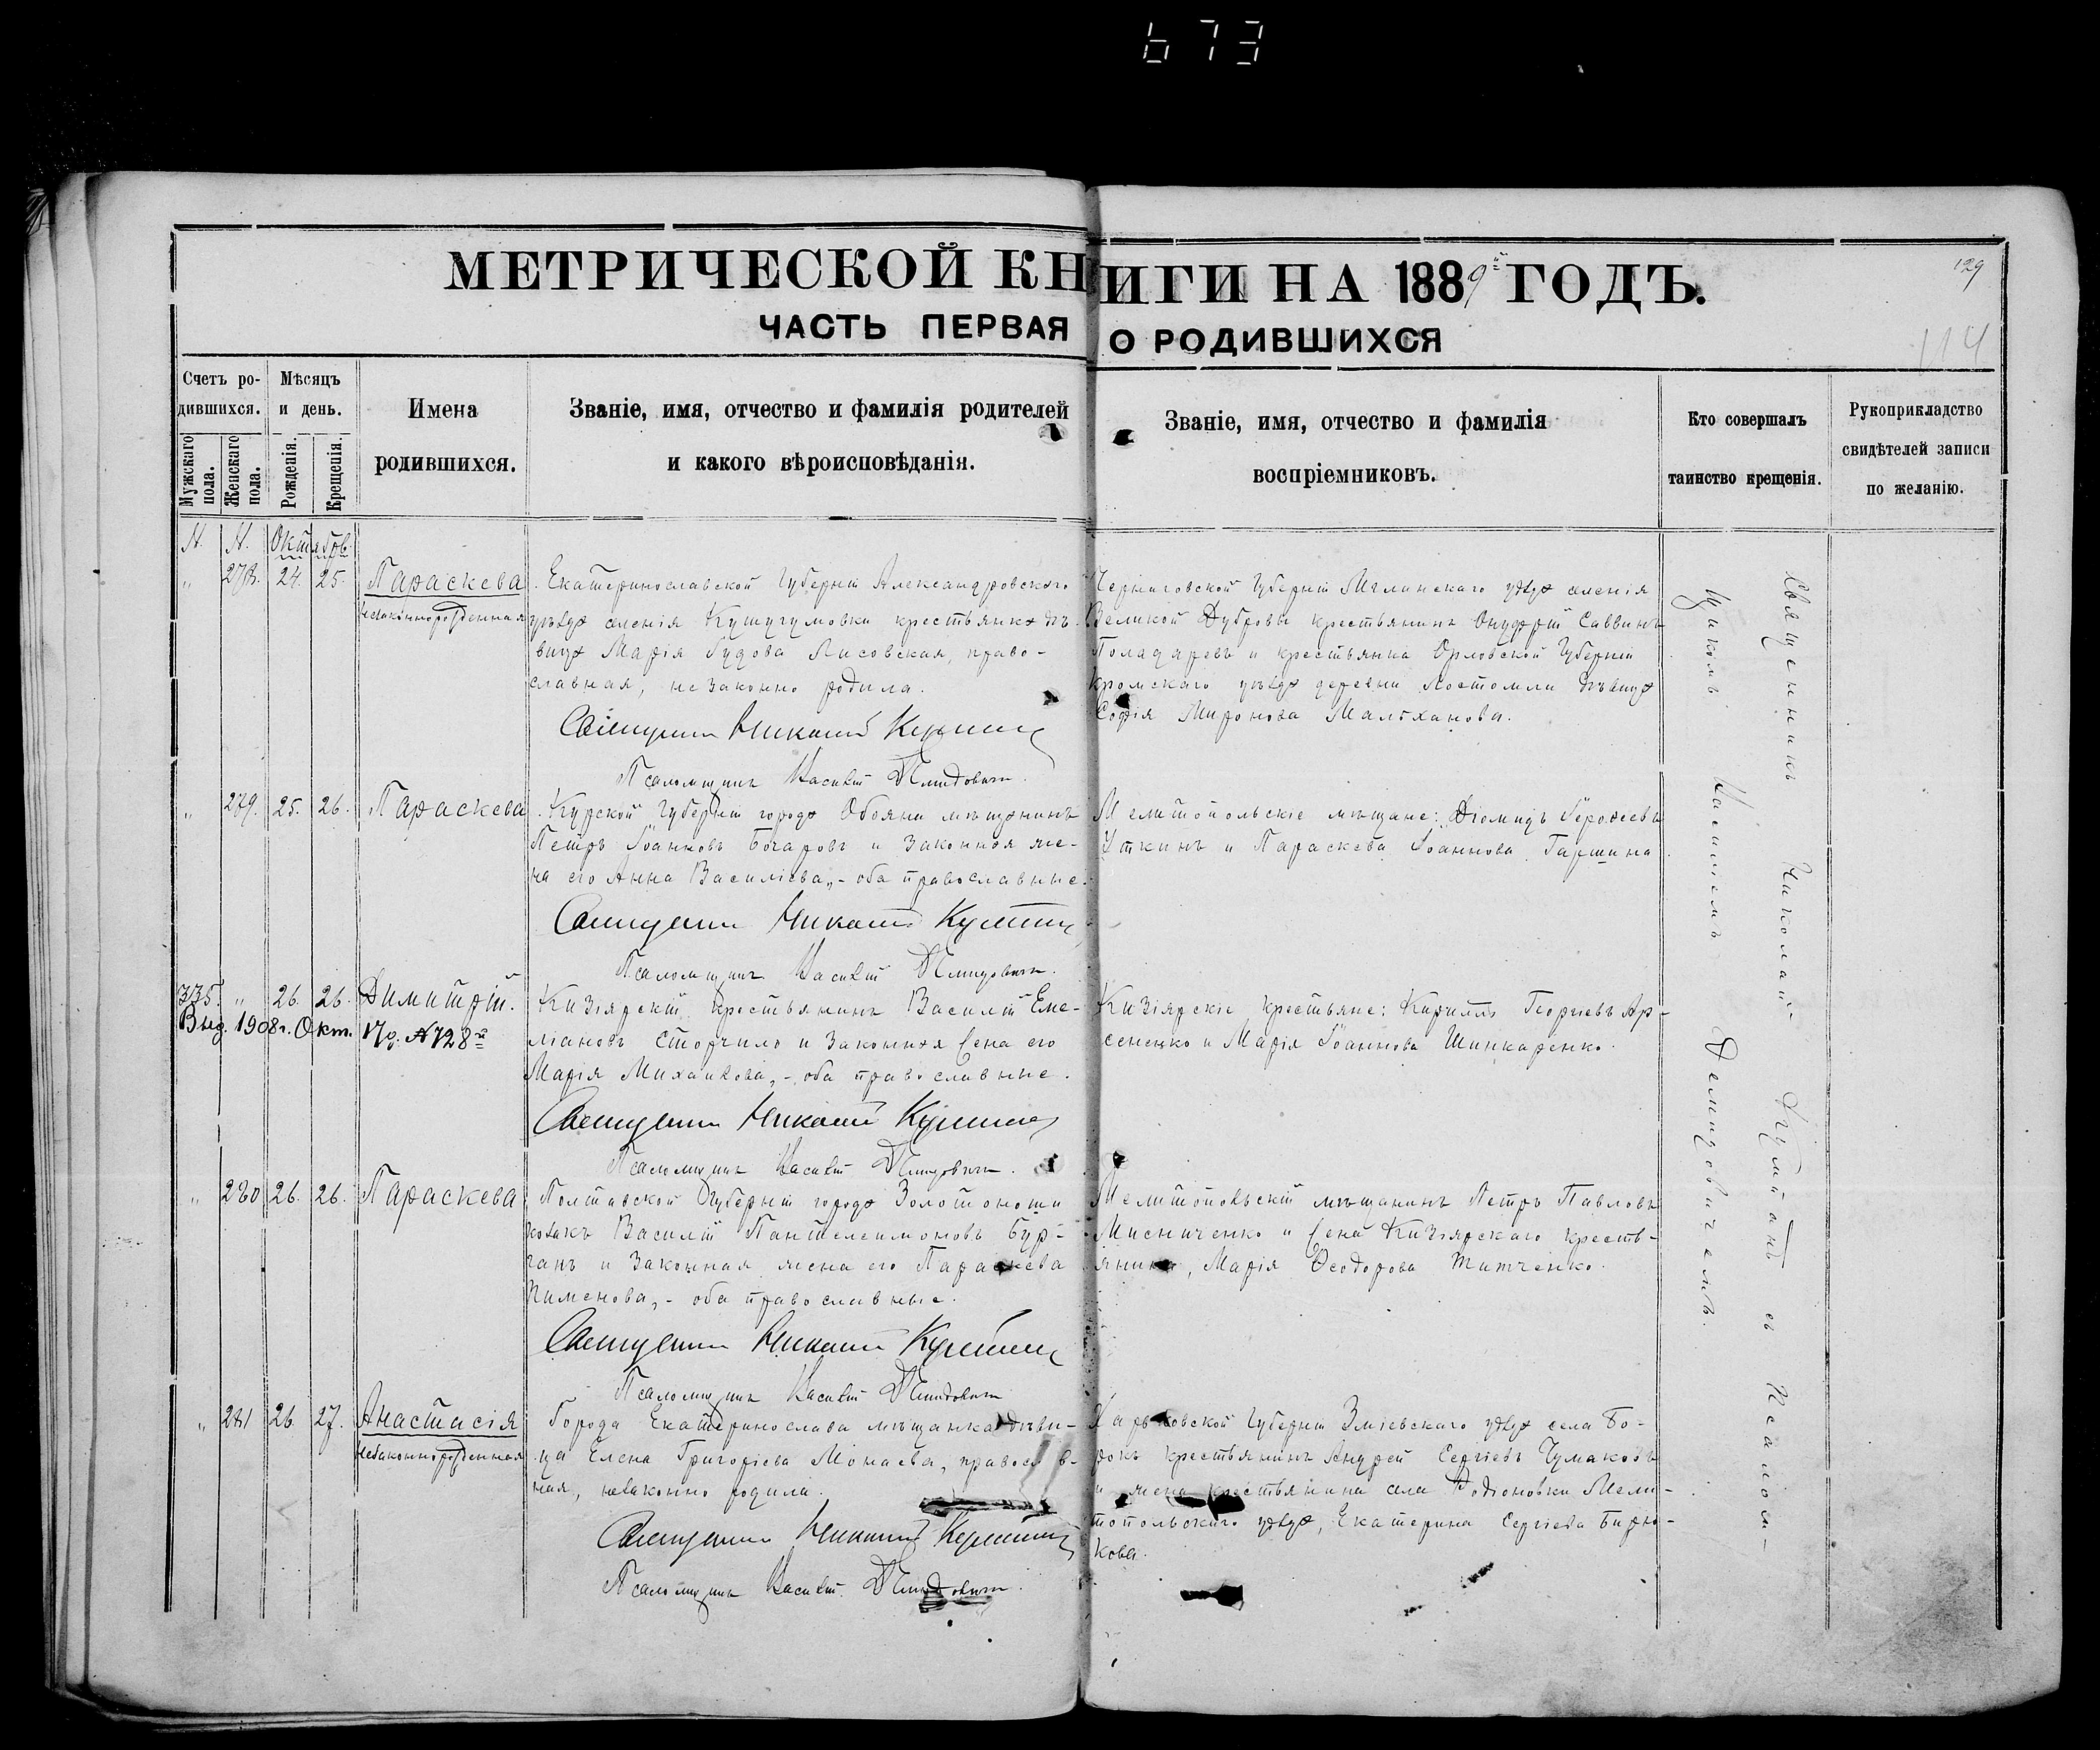 673
129
114
МЕТРИЧЕСКОЙ КНИГИ НА 1889й ГОДЪ.
ЧАСТЬ ПЕРВАЯ О РОДИВШИХСЯ
Счетъ ро-
дившихся.
Мужскаго пола.
Женскаго пола.
Мѣсяцъ
и день.
Рожденія.
Крещенія.
Имена
родившихся.
Званіе, имя, отчество и фамилія родителей
и какого вѣроисповѣданія.
Званіе, имя, отчество и фамилія
воспріемниковъ.
Кто совершалъ
таинство крещенія.
Рукоприкладство
свидѣтелей записи
по желанію.
№. №. Октябрь
„ 278. 24. 25. Параскева
незаконнорожденная
Екатеринославской Губерніи Александровскаго
уѣзда селенія Кушугумовки крестьянка дѣ-
вица Марія Лисовская, право-
славная, незаконно родила.
Священникъ Николай
Псаломщикъ Василій Демидовичъ.
Черниговской Губерніи Мглинскаго уѣзда селенія
Великой Дубровы крестьянинъ Онуфрій Саввинъ
и крестьянка Орловской Губерніи
Кромскаго уѣзда деревни дѣвица
Софія Миронова Малѣханова.
„ 279. 25. 26. Параскева
Курской Губерніи города Обояни мѣщанинъ
Петръ Іоанновъ Бочаровъ и законная же-
на его Анна Василіева, - оба православные.
Священникъ Николай
Псаломщикъ Василій Демидовичъ.
Мелитопольскіе мѣщане: Діомидъ Іероѳеевъ
Уткинъ и Параскева Іоаннова Гаршина
335. „ 26. 26. Димитрій.
Выд. 1908г. Окт. 17д. №728й
Кизіярскій крестьянинъ Василій Еме-
ліановъ Сторчило и законная жена его
Марія Михаилова, - оба православные.
Священникъ Николай
Псаломщикъ Василій Демидовичъ.
Кизіярскіе крестьяне: Кириллъ Георгіевъ Ар-
сененко и Марія Іоаннова Шинкаренко.
„ 280 26. 26. Параскева
Полтавской Губерніи города Золотоноши
козакъ Василій Пантелеимоновъ Бур-
ганъ и законная жена его Параскева
Пименова, - оба православные.
Священникъ Николай
Псаломщикъ Василій Демидовичъ
Мелитопольскій мѣщанинъ Петръ Павловъ
Мисниченко и жена Кизіярскаго кресть-
янина, Марія Ѳеодорова Титченко.
„ 281 26. 27. Анастасія
Незаконнорожденная
Города Екатеринослава мѣщанка дѣви-
ца Елена Григоріева Монаева, правосла в-
ная, незаконно родила.
Священникъ Николай
Псаломщикъ Василій Демидовичъ.
Харьковской Губерніи Зміевскаго уѣзда села Бо-
рокъ крестьянинъ Андрей Сергіевъ Чумаковъ
и жена крестьянина села Родіоновки Мели-
топольскаго уѣзда, Екатерина Сергіева Бирю-
кова.
Священникъ Николай съ Псалом-
щикомъ Василіемъ Демидовичемъ.